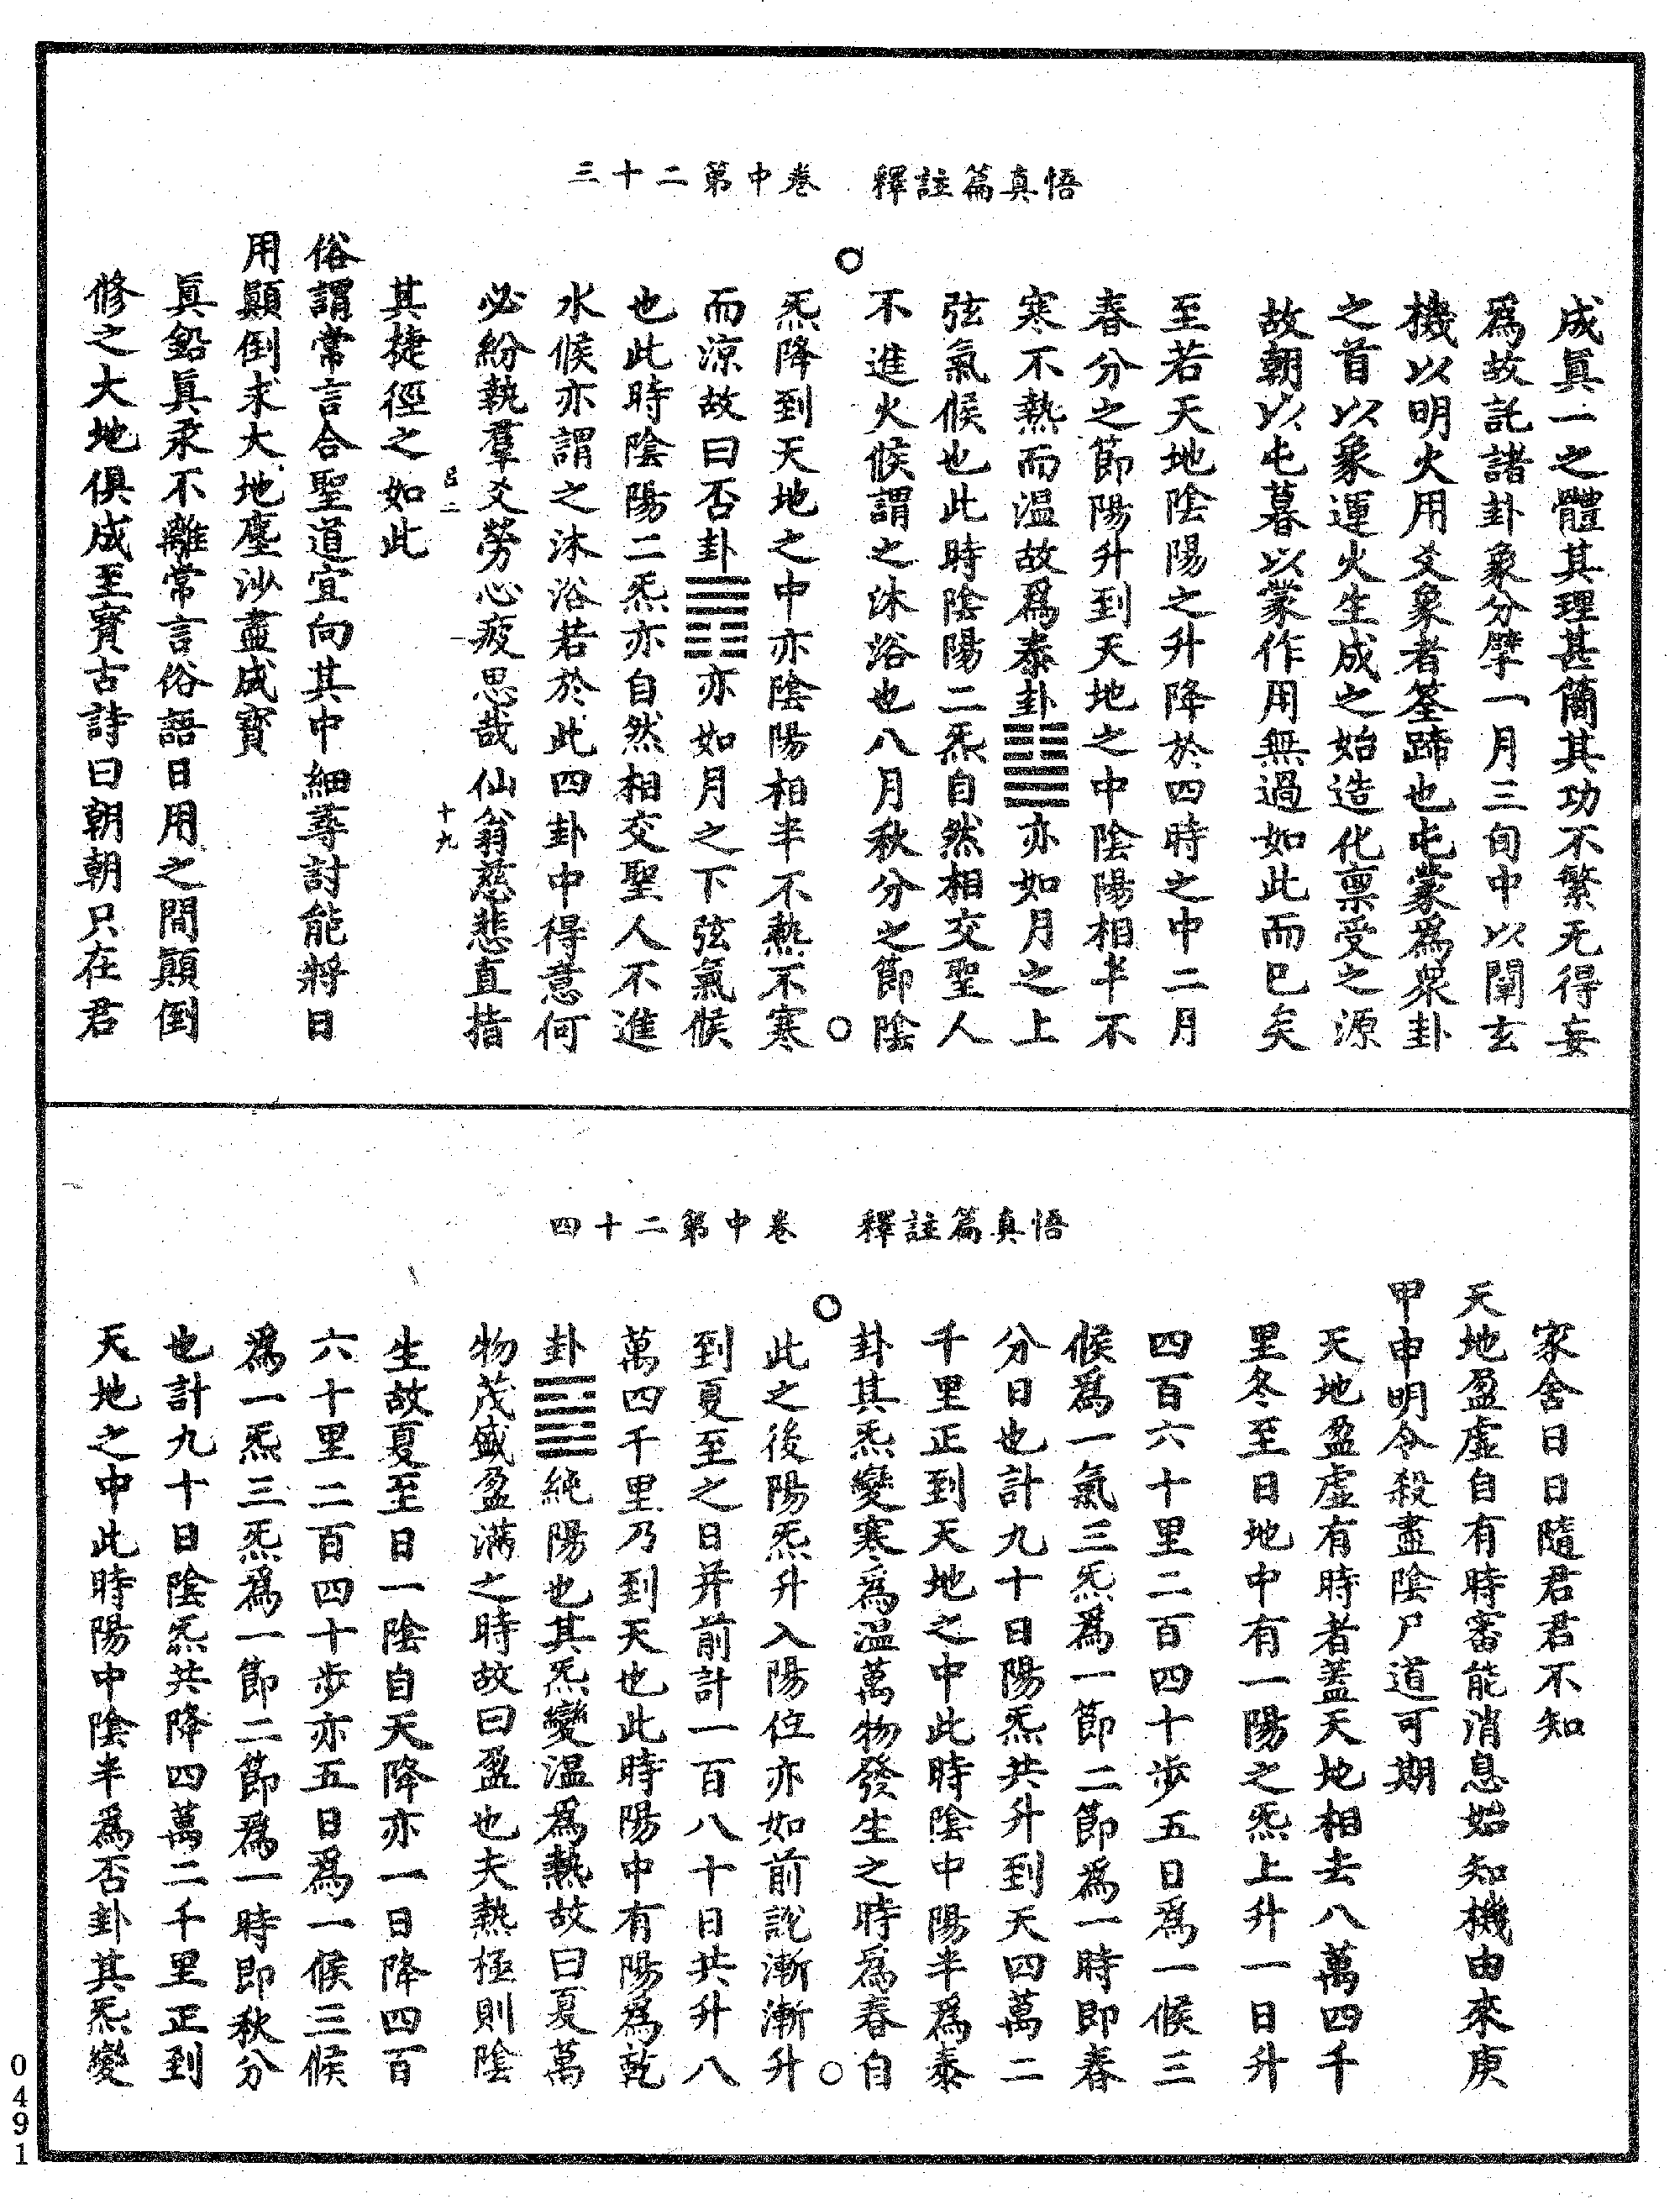 悟真篇註釋　卷中第二十三
成眞一之體其理甚簡其功不繁无得妄
爲故託諸卦象分擘一月三旬中以闡玄
機以明火用爻象者筌蹄也屯蒙爲衆卦
之首以象運火生成之始造化禀受之源
故朝以屯暮以蒙作用無過如此而已矣
至若天地陰陽之升降於四時之中二月
春分之節陽升到天地之中陰陽相半不
寒不熱而温故爲泰卦䷊亦如月之上
弦氣候也此時陰陽二炁自然相交聖人
不進火候謂之沐浴也八月秋分之節陰
炁降到天地之中亦陰陽相半不熱不寒
而涼故曰否卦䷋亦如月之下弦氣候
也此時陰陽二炁亦自然相交聖人不進
水候亦謂之沐浴若於此四卦中得意何
必紛執羣爻勞心疲思哉仙翁慈悲直指
十九
其捷徑之如此
俗謂常言合聖道宜向其中細尋討能將日
用顚倒求大地塵沙盡成寳
眞鉛眞汞不離常言俗語日用之間顚倒
修之大地俱成至寳古詩曰朝朝只在君
悟真篇註釋　卷中第二十四
家舍日日隨君君不知
天地盈虛自有時審能消息始知機由來庚
甲申明令殺盡陰尸道可期
天地盈虛有時者蓋天地相去八萬四千
里冬至日地中有一陽之炁上升一日升
四百六十里二百四十步五日爲一候三
候爲一氣三炁爲一節二節爲一時即春
分日也計九十日陽炁共升到天四萬二
千里正到天地之中此時陰中陽半爲泰
卦其炁變寒爲温萬物發生之時爲春自
此之後陽炁升入陽位亦如前說漸漸升
到夏至之日并前計一百八十日共升八
萬四千里乃到天也此時陽中有陽爲乾
卦䷀純陽也其炁變温爲熱故曰夏萬
物茂盛盈满之時故曰盈也夫熱極則陰
生故夏至日一陰自天降亦一日降四百
六十里二百四十步亦五日爲一候三候
爲一炁三炁爲一節二節爲一時即秋分
也計九十日陰炁共降四萬二千里正到
天地之中此時陽中陰半爲否卦其炁變
0491